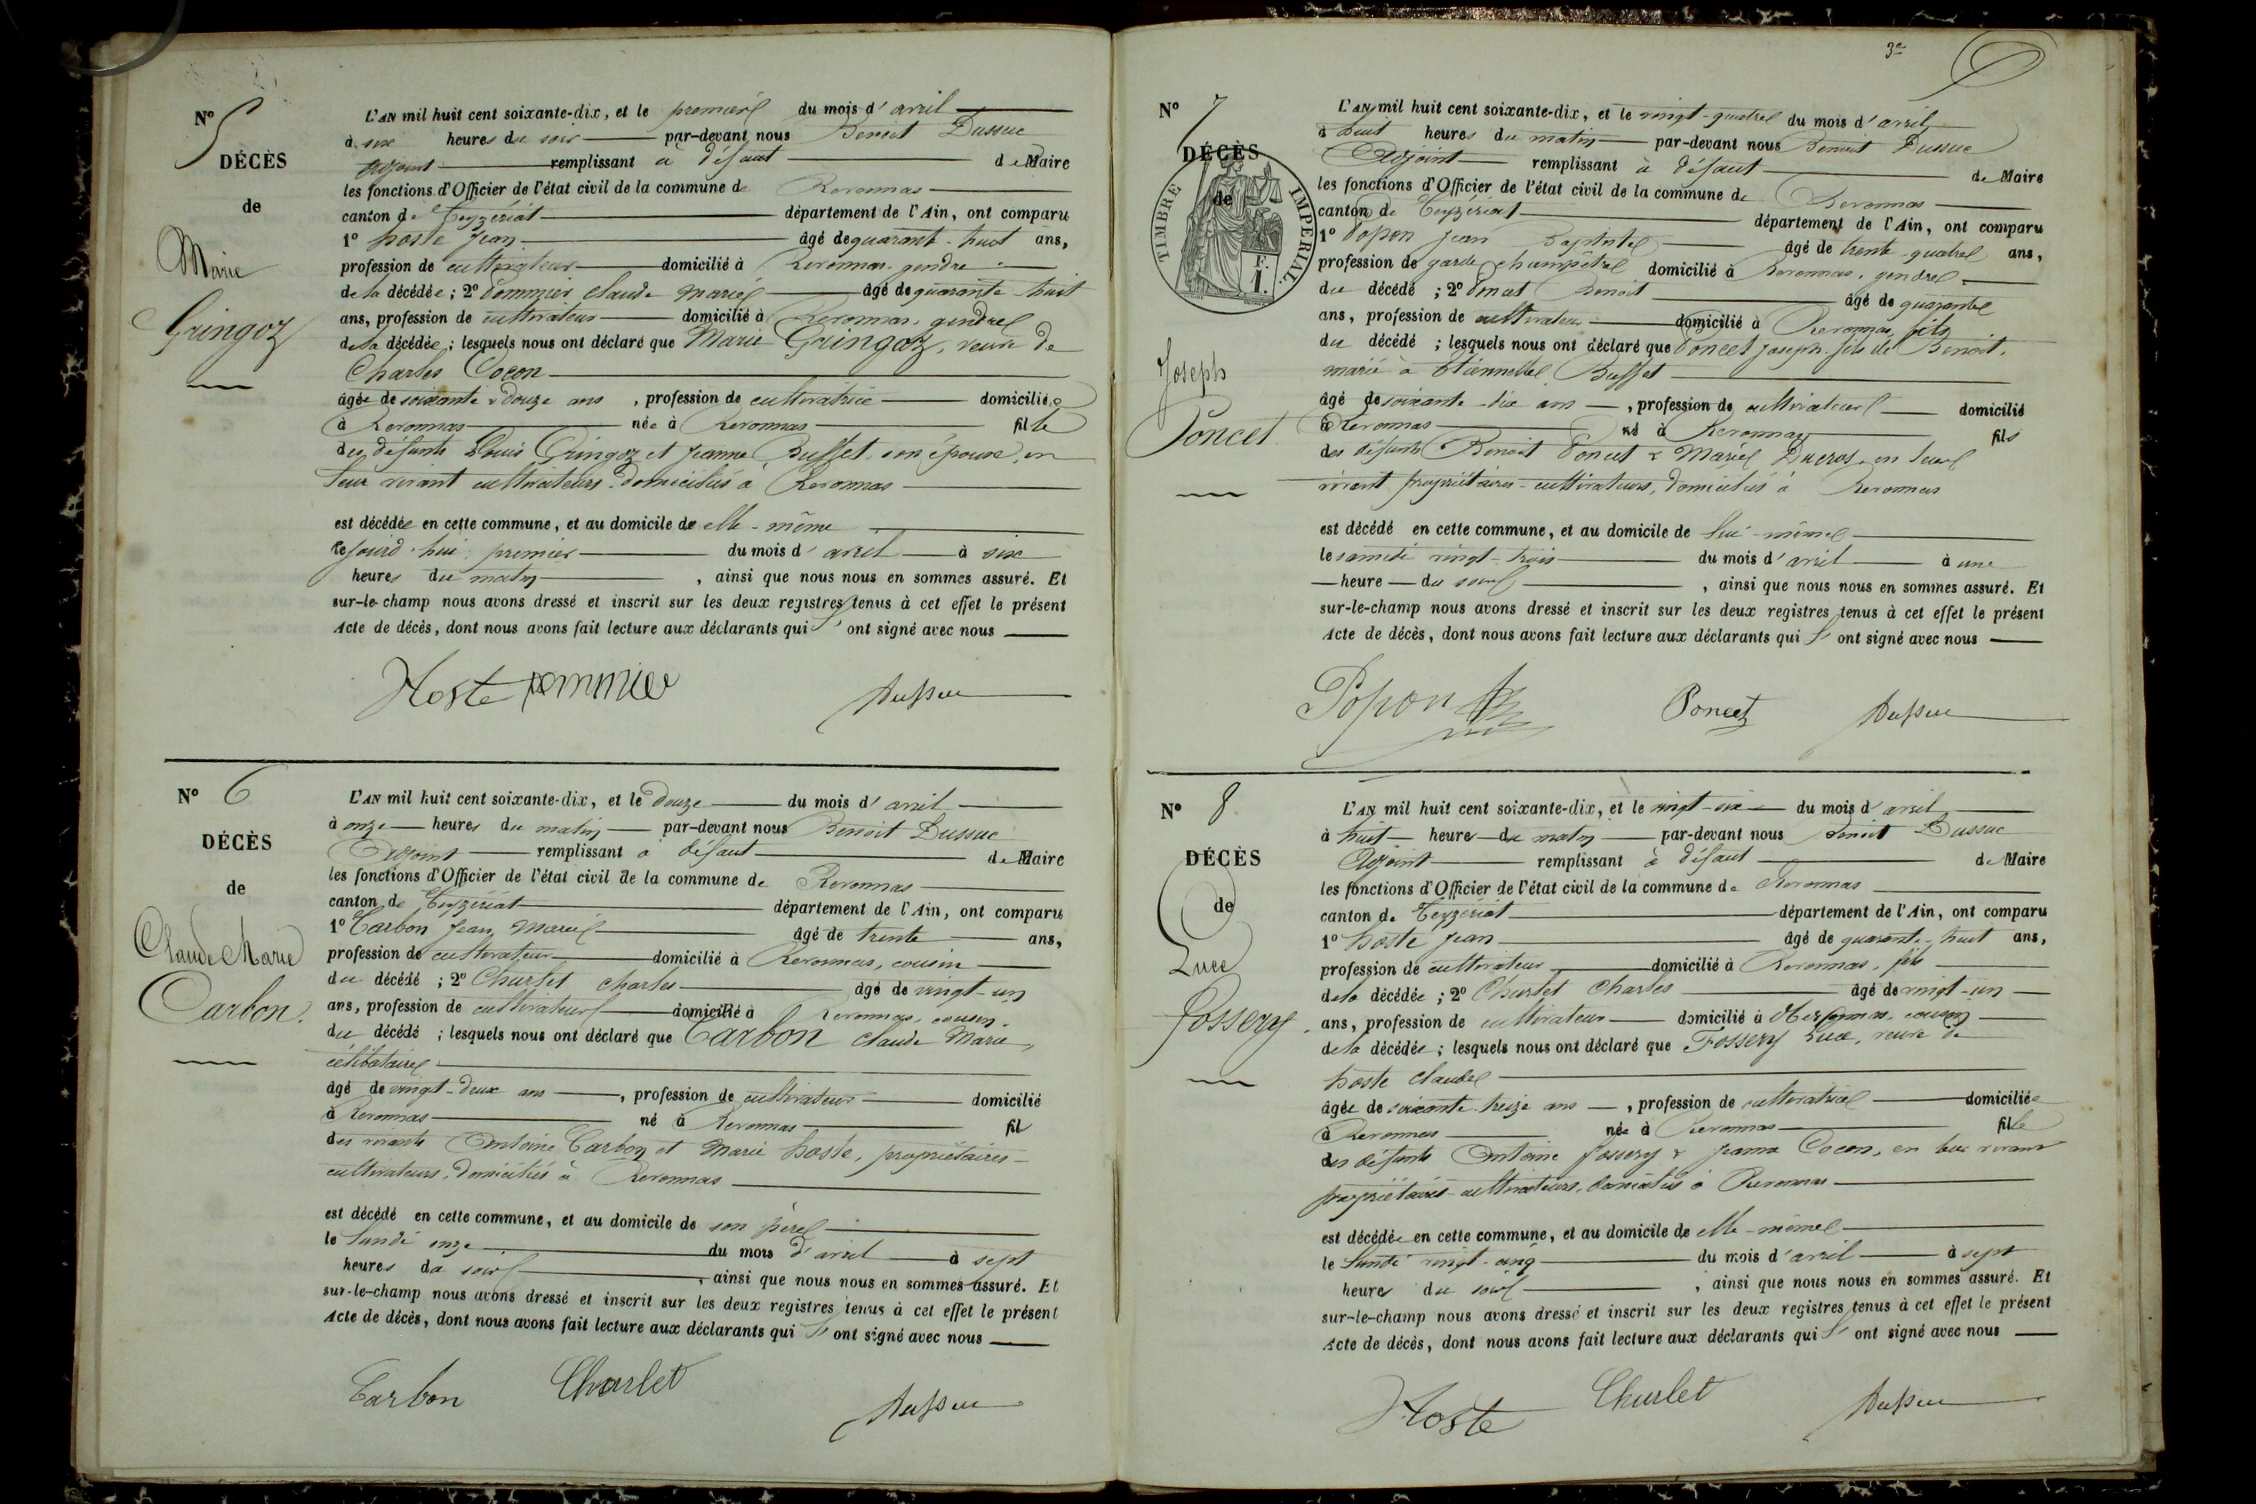 Nº 5
DÉCÈS
de
Marie
Gringoz
L'AN mil huit cent soixante-dix, et le premier du mois d'avril
à six heures du soir par-devant nous Benoit Dussuc
Adjoint remplissant à défaut de Maire
les fonctions d'Officier de l'état civil de la commune de Revonnas
canton de Ceyzériat département de l'Ain, ont comparu
1º hoste Jean âgé de quarante-huit ans,
profession de cultivateur domicilié à Revonnas, gendre
de la décédée ; 2º Pommier Claude Marie âgé de quarante-huit
ans, profession de cultivateur domicilié à Revonnas, gendre
de la décédée ; lesquels nous ont déclaré que Marie Gringoz, veuve de
Charles Cocon
âgée de soixante & douze ans, profession de cultivatrice domiciliée
à Revonnas née à Revonnas fille
des défunts Louis Gringoz et Jeanne Buffet son épouse, en
leur vivant cultivateurs, domiciliés à Revonnas
est décédée en cette commune, et au domicile de elle-même
le jourd'hui premier du mois d'avril à six
heures du matin, ainsi que nous nous en sommes assuré. Et
sur-le-champ nous avons dressé et inscrit sur les deux registres tenus à cet effet le présent
Acte de décès, dont nous avons fait lecture aux déclarants qui l'ont signé avec nous
Hoste pommier Dussuc
Nº 6
DÉCÈS
de
Claude Marie
Carbon
L'AN mil huit cent soixante-dix, et le douze du mois d'avril
à onze heures du matin par-devant nous Benoit Dussuc
Adjoint remplissant à défaut de Maire
les fonctions d'Officier de l'état civil de la commune de Revonnas
canton de Ceyzériat département de l'Ain, ont comparu
1º Carbon Jean Marie âgé de trente ans,
profession de cultivateur domicilié à Revonnas, cousin
du décédé ; 2º Churlet Charles âgé de vingt-un
ans, profession de cultivateur domicilié à Revonnas, cousin
du décédé ; lesquels nous ont déclaré que Carbon Claude Marie,
célibataire
âgé de vingt-deux ans, profession de cultivateur domicilié
à Revonnas né à Revonnas fils
des vivants Antoine Carbon et Marie hoste, propriétaires-
cultivateurs, domiciliés à Revonnas
est décédé en cette commune, et au domicile de son père
le lundi onze du mois d'avril à sept
heures du soir, ainsi que nous nous en sommes assuré. Et
sur-le-champ nous avons dressé et inscrit sur les deux registres tenus à cet effet le présent
Acte de décès, dont nous avons fait lecture aux déclarants qui l'ont signé avec nous
Carbon Churlet Dussuc
3e
Nº 7
DÉCÈS
de
TIMBRE IMPÉRIAL
F.
1.
Joseph
Poncet
L'AN mil huit cent soixante-dix, et le vingt-quatre du mois d'avril
à huit heures du matin par-devant nous Benoit Dussuc
Adjoint remplissant à défaut de Maire
les fonctions d'Officier de l'état civil de la commune de Revonnas
canton de Ceyzériat département de l'Ain, ont comparu
1º Popon Jean Baptiste âgé de trente-quatre ans,
profession de garde champêtre domicilié à Revonnas, gendre
du décédé ; 2º Poncet Benoit âgé de quarante
ans, profession de cultivateur domicilié à Revonnas, fils
du décédé ; lesquels nous ont déclaré que Poncet Joseph, fils de Benoit,
marié à Etiennette Buffet
âgé de soixante-dix ans, profession de cultivateur domicilié
à Revonnas né à Revonnas fils
des défunts Benoit Poncet & Marie Ducros, en leur
vivant propriétaires-cultivateurs, domiciliés à Revonnas
est décédé en cette commune, et au domicile de lui-même
le samedi vingt-trois du mois d'avril à une
heure du soir, ainsi que nous nous en sommes assuré. Et
sur-le-champ nous avons dressé et inscrit sur les deux registres tenus à cet effet le présent
Acte de décès, dont nous avons fait lecture aux déclarants qui l'ont signé avec nous
Popon Poncet Dussuc
Nº 8
DÉCÈS
de
Luce
Fossery
L'AN mil huit cent soixante-dix, et le vingt-six du mois d'avril
à huit heures du matin par-devant nous Benoit Dussuc
Adjoint remplissant à défaut de Maire
les fonctions d'Officier de l'état civil de la commune de Revonnas
canton de Ceyzériat département de l'Ain, ont comparu
1º hoste Jean âgé de quarante-huit ans,
profession de cultivateur domicilié à Revonnas, fils
de la décédée ; 2º Churlet Charles âgé de vingt-un
ans, profession de cultivateur domicilié à Revonnas, cousin
de la décédée ; lesquels nous ont déclaré que Fossery Luce, veuve de
hoste Claude
âgée de soixante-treize ans, profession de cultivatrice domiciliée
à Revonnas née à Revonnas fille
des défunts Antoine Fossery & Jeanne Cocon, en leur vivant
propriétaires-cultivateurs, domiciliés à Revonnas
est décédée en cette commune, et au domicile de elle-même
le lundi vingt-cinq du mois d'avril à sept
heures du soir, ainsi que nous nous en sommes assuré. Et
sur-le-champ nous avons dressé et inscrit sur les deux registres tenus à cet effet le présent
Acte de décès, dont nous avons fait lecture aux déclarants qui l'ont signé avec nous
Hoste Churlet Dussuc